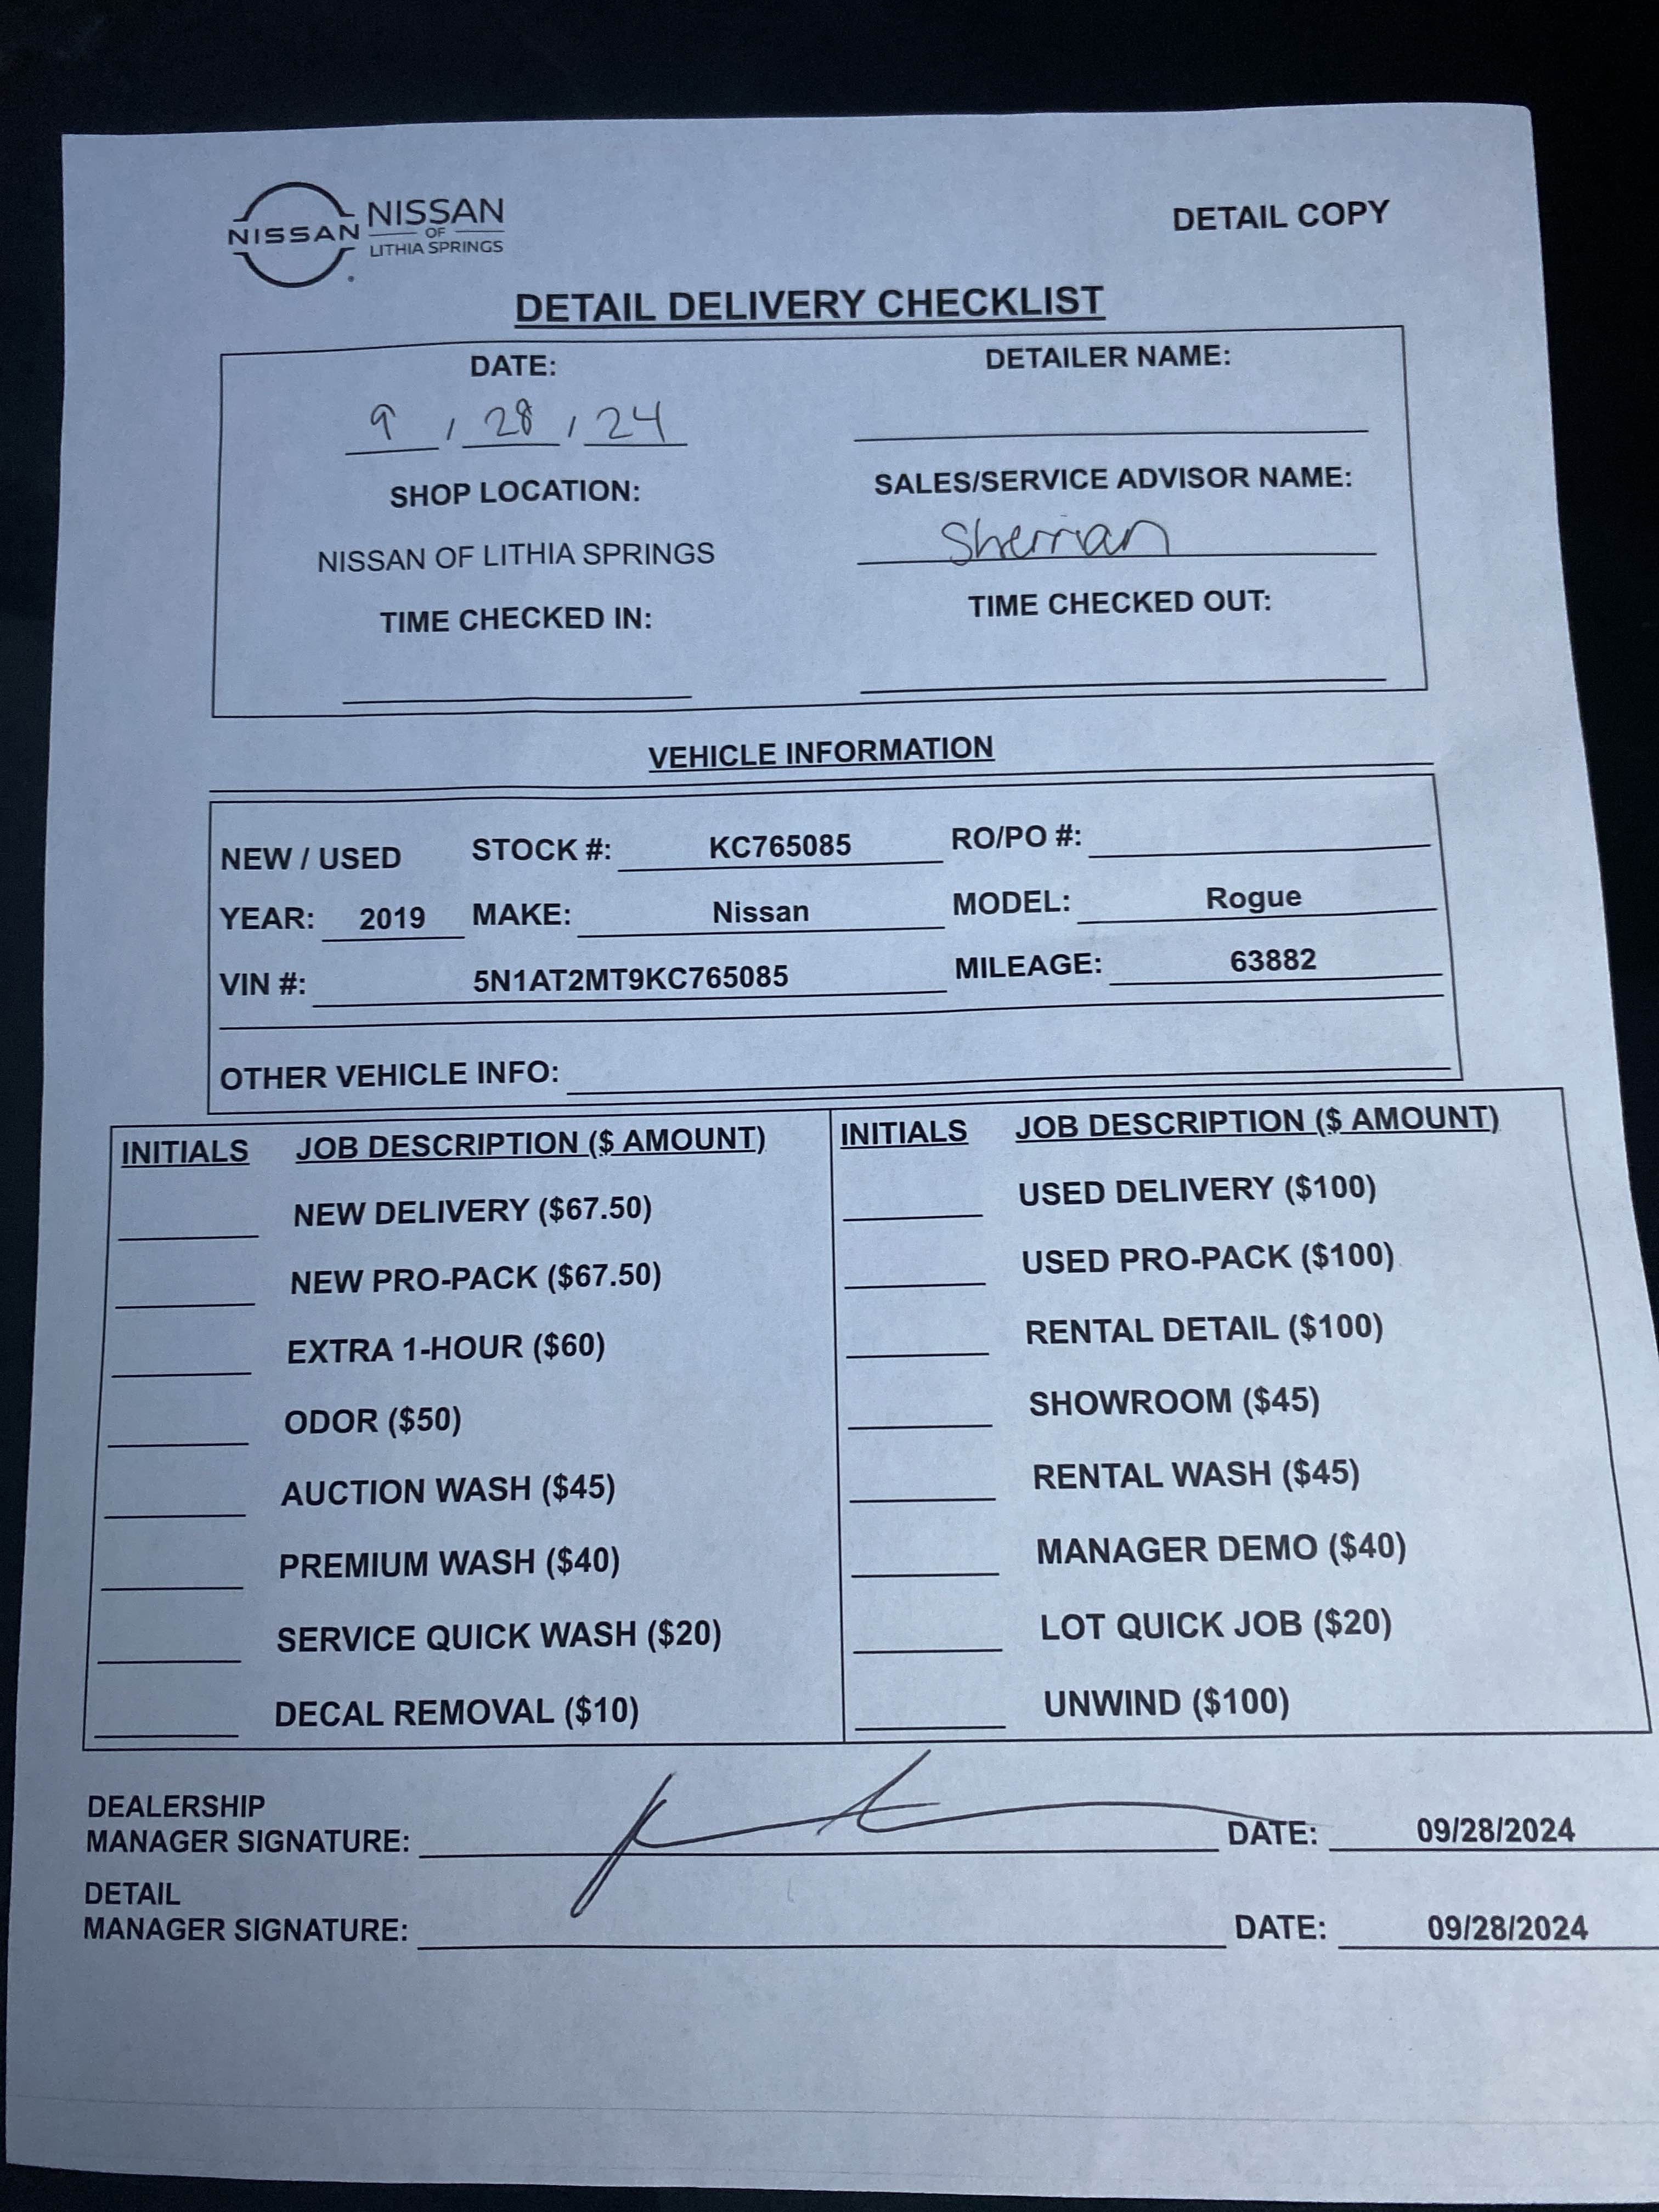 NISSAN
NISSAN
OF
LITHIA SPRINGS
DETAIL COPY
DETAIL DELIVERY CHECKLIST
DATE:
9 / 28 / 24
DETAILER NAME:
SHOP LOCATION:
NISSAN OF LITHIA SPRINGS
SALES/SERVICE ADVISOR NAME:
Sherrian
TIME CHECKED IN:
TIME CHECKED OUT:
VEHICLE INFORMATION
NEW / USED STOCK #: KC765085 RO/PO #:
YEAR: 2019 MAKE: Nissan MODEL: Rogue
VIN #: 5N1AT2MT9KC765085 MILEAGE: 63882
OTHER VEHICLE INFO:
INITIALS JOB DESCRIPTION ($ AMOUNT)
NEW DELIVERY ($67.50)
NEW PRO-PACK ($67.50)
EXTRA 1-HOUR ($60)
ODOR ($50)
AUCTION WASH ($45)
PREMIUM WASH ($40)
SERVICE QUICK WASH ($20)
DECAL REMOVAL ($10)
INITIALS JOB DESCRIPTION ($ AMOUNT)
USED DELIVERY ($100)
USED PRO-PACK ($100)
RENTAL DETAIL ($100)
SHOWROOM ($45)
RENTAL WASH ($45)
MANAGER DEMO ($40)
LOT QUICK JOB ($20)
UNWIND ($100)
DEALERSHIP
MANAGER SIGNATURE: DATE: 09/28/2024
DETAIL
MANAGER SIGNATURE: DATE: 09/28/2024